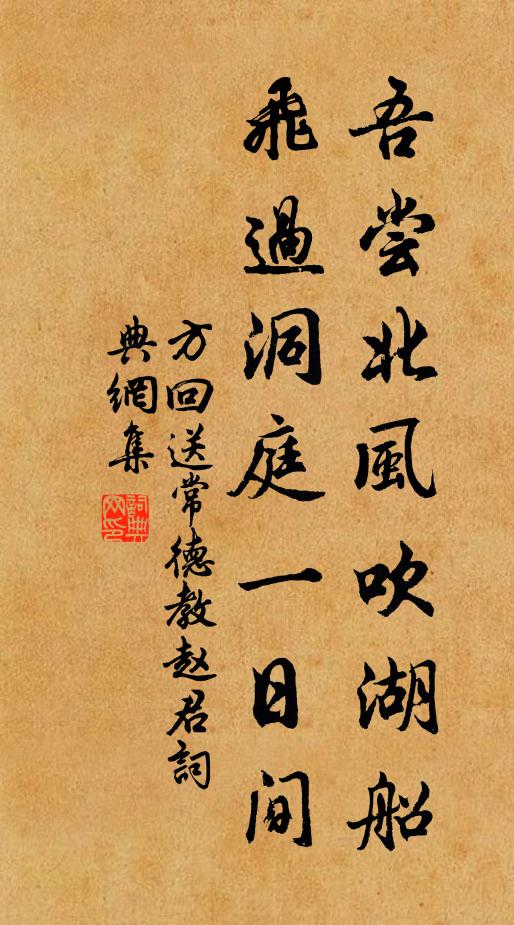 吾尝北風吹湖船
飛過洞庭一日间
方回送常德教赵君詞
典網集
詞典網印